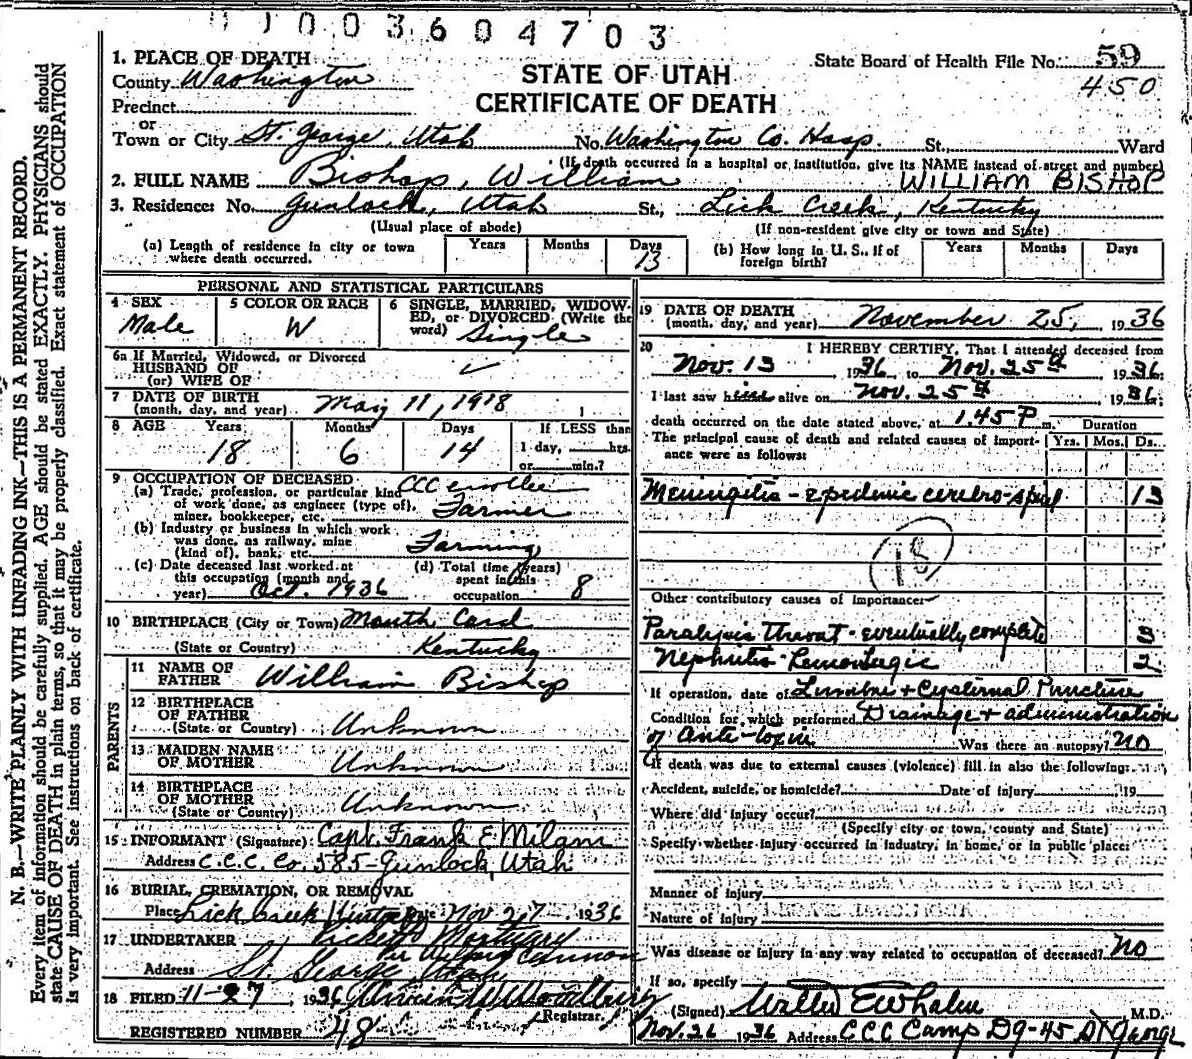 003604703
1. PLACE OF DEATH
County Washington
Precinct
or
Town or City St. George, Utah No. Washington Co. Hosp. St., Ward
STATE OF UTAH
CERTIFICATE OF DEATH
State Board of Health File No. 59
450
(If death occurred in a hospital or institution, give its NAME instead of street and number)
2. FULL NAME Bishop, William WILLIAM BISHOP
3. Residence: No. Gunlock, Utah St., Lick Creek, Kentucky
(Usual place of abode) (If non-resident give city or town and State)
(a) Length of residence in city or town where death occurred. Years Months Days 13
(b) How long in U. S., if of foreign birth? Years Months Days
PERSONAL AND STATISTICAL PARTICULARS
4 SEX Male
5 COLOR OR RACE W
6 SINGLE, MARRIED, WIDOWED, or DIVORCED. (Write the word) Single
6a If Married, Widowed, or Divorced
HUSBAND OF
(or) WIFE OF
7 DATE OF BIRTH
(month, day, and year) May 11, 1918
8 AGE Years Months Days If LESS than
18 6 14 1 day, hrs.
or min.?
9 OCCUPATION OF DECEASED
(a) Trade, profession, or particular kind of work done, as engineer (type of), miner, bookkeeper, etc. CCC enrollee Farmer
(b) Industry or business in which work was done, as railway, mine (kind of), bank, etc. Farming
(c) Date deceased last worked at this occupation (month and year) Oct. 1936
(d) Total time (years) spent in this occupation 8
10 BIRTHPLACE (City or Town) Mouth Card
(State or Country) Kentucky
PARENTS
11 NAME OF FATHER William Bishop
12 BIRTHPLACE OF FATHER
(State or Country) Unknown
13 MAIDEN NAME OF MOTHER Unknown
14 BIRTHPLACE OF MOTHER
(State or Country) Unknown
15 INFORMANT (Signature) Capt. Frank E Milam
Address C.C.C. Co. 585 - Gunlock, Utah
16 BURIAL, CREMATION, OR REMOVAL
Place Lick Creek Kentucky Date Nov 27 1936
17 UNDERTAKER Mortuary
Per Cannon
Address St. George, Utah
18 FILED 11-27, 1936 W Woodbury
Registrar.
REGISTERED NUMBER 48
19 DATE OF DEATH
(month, day, and year) November 25, 1936
20 I HEREBY CERTIFY, That I attended deceased from
Nov. 13 1936, to Nov. 25th 1936.
I last saw him alive on Nov. 25th 1936;
death occurred on the date stated above, at 1.45 P m. Duration
The principal cause of death and related causes of importance were as follows: Yrs. Mos. Ds.
Meningitis - epidemic cerebro-spinal 13
18
Other contributory causes of importance:
Paralysis throat - eventually complete 3
Nephritis - hemorrhagic 2
If operation, date of Lumbar + Cysternal Puncture
Condition for which performed Drainage + administration
of Anti-toxin Was there an autopsy? No
If death was due to external causes (violence) fill in also the following:
Accident, suicide, or homicide? Date of injury 19
Where did injury occur?
(Specify city or town, county and State)
Specify whether injury occurred in industry, in home, or in public place:
Manner of injury
Nature of injury
Was disease or injury in any way related to occupation of deceased? No
If so, specify
(Signed) Walter E Whalen M.D.
Nov. 26 1936 Address CCC Camp DG-45 St George
N. B.—WRITE PLAINLY WITH UNFADING INK—THIS IS A PERMANENT RECORD.
Every item of information should be carefully supplied. AGE should be stated EXACTLY. PHYSICIANS should
state CAUSE OF DEATH in plain terms, so that it may be properly classified. Exact statement of OCCUPATION
is very important. See instructions on back of certificate.